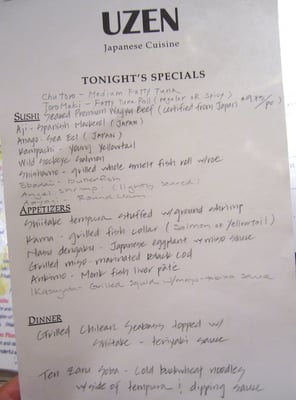 UZEN
Japanese Cuisine
TONIGHT'S SPECIALS
Chu Toro - Medium Fatty Tuna
Toro Maki - Fatty Tuna Roll (regular or Spicy)
SUSHI Seared Premium Wagyu Beef (certified from Japan)
Aji - Spanish Mackerel (Japan)
Anago - Sea Eel (Japan)
Kampachi - Young Yellowtail
Wild Sockeye Salmon
Shishamo - grilled whole smelt fish roll w/roe
Amaebi shrimp (lightly seared)
Round Clam
APPETIZERS
Shiitake tempura stuffed w/ground shrimp
Kama - grilled fish collar (Salmon or Yellowtail)
Nasu dengaku - Japanese eggplant w/miso sauce
Grilled miso-marinated Black Cod
Ankimo - Monk fish liver pâte
Ikasugata - Grilled Squid w/mayo-tobiko sauce
DINNER
Grilled Chilean Seabass topped w/
shiitake - teriyaki sauce
Ten Zaru Soba - Cold buckwheat noodles
w/side of tempura & dipping sauce